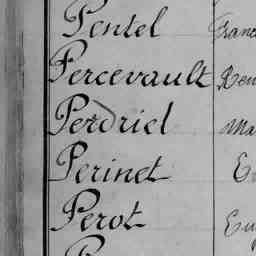 Pentel Franc
Percevault Ren
Perdriel Ma
Perinet E
Perot Eug